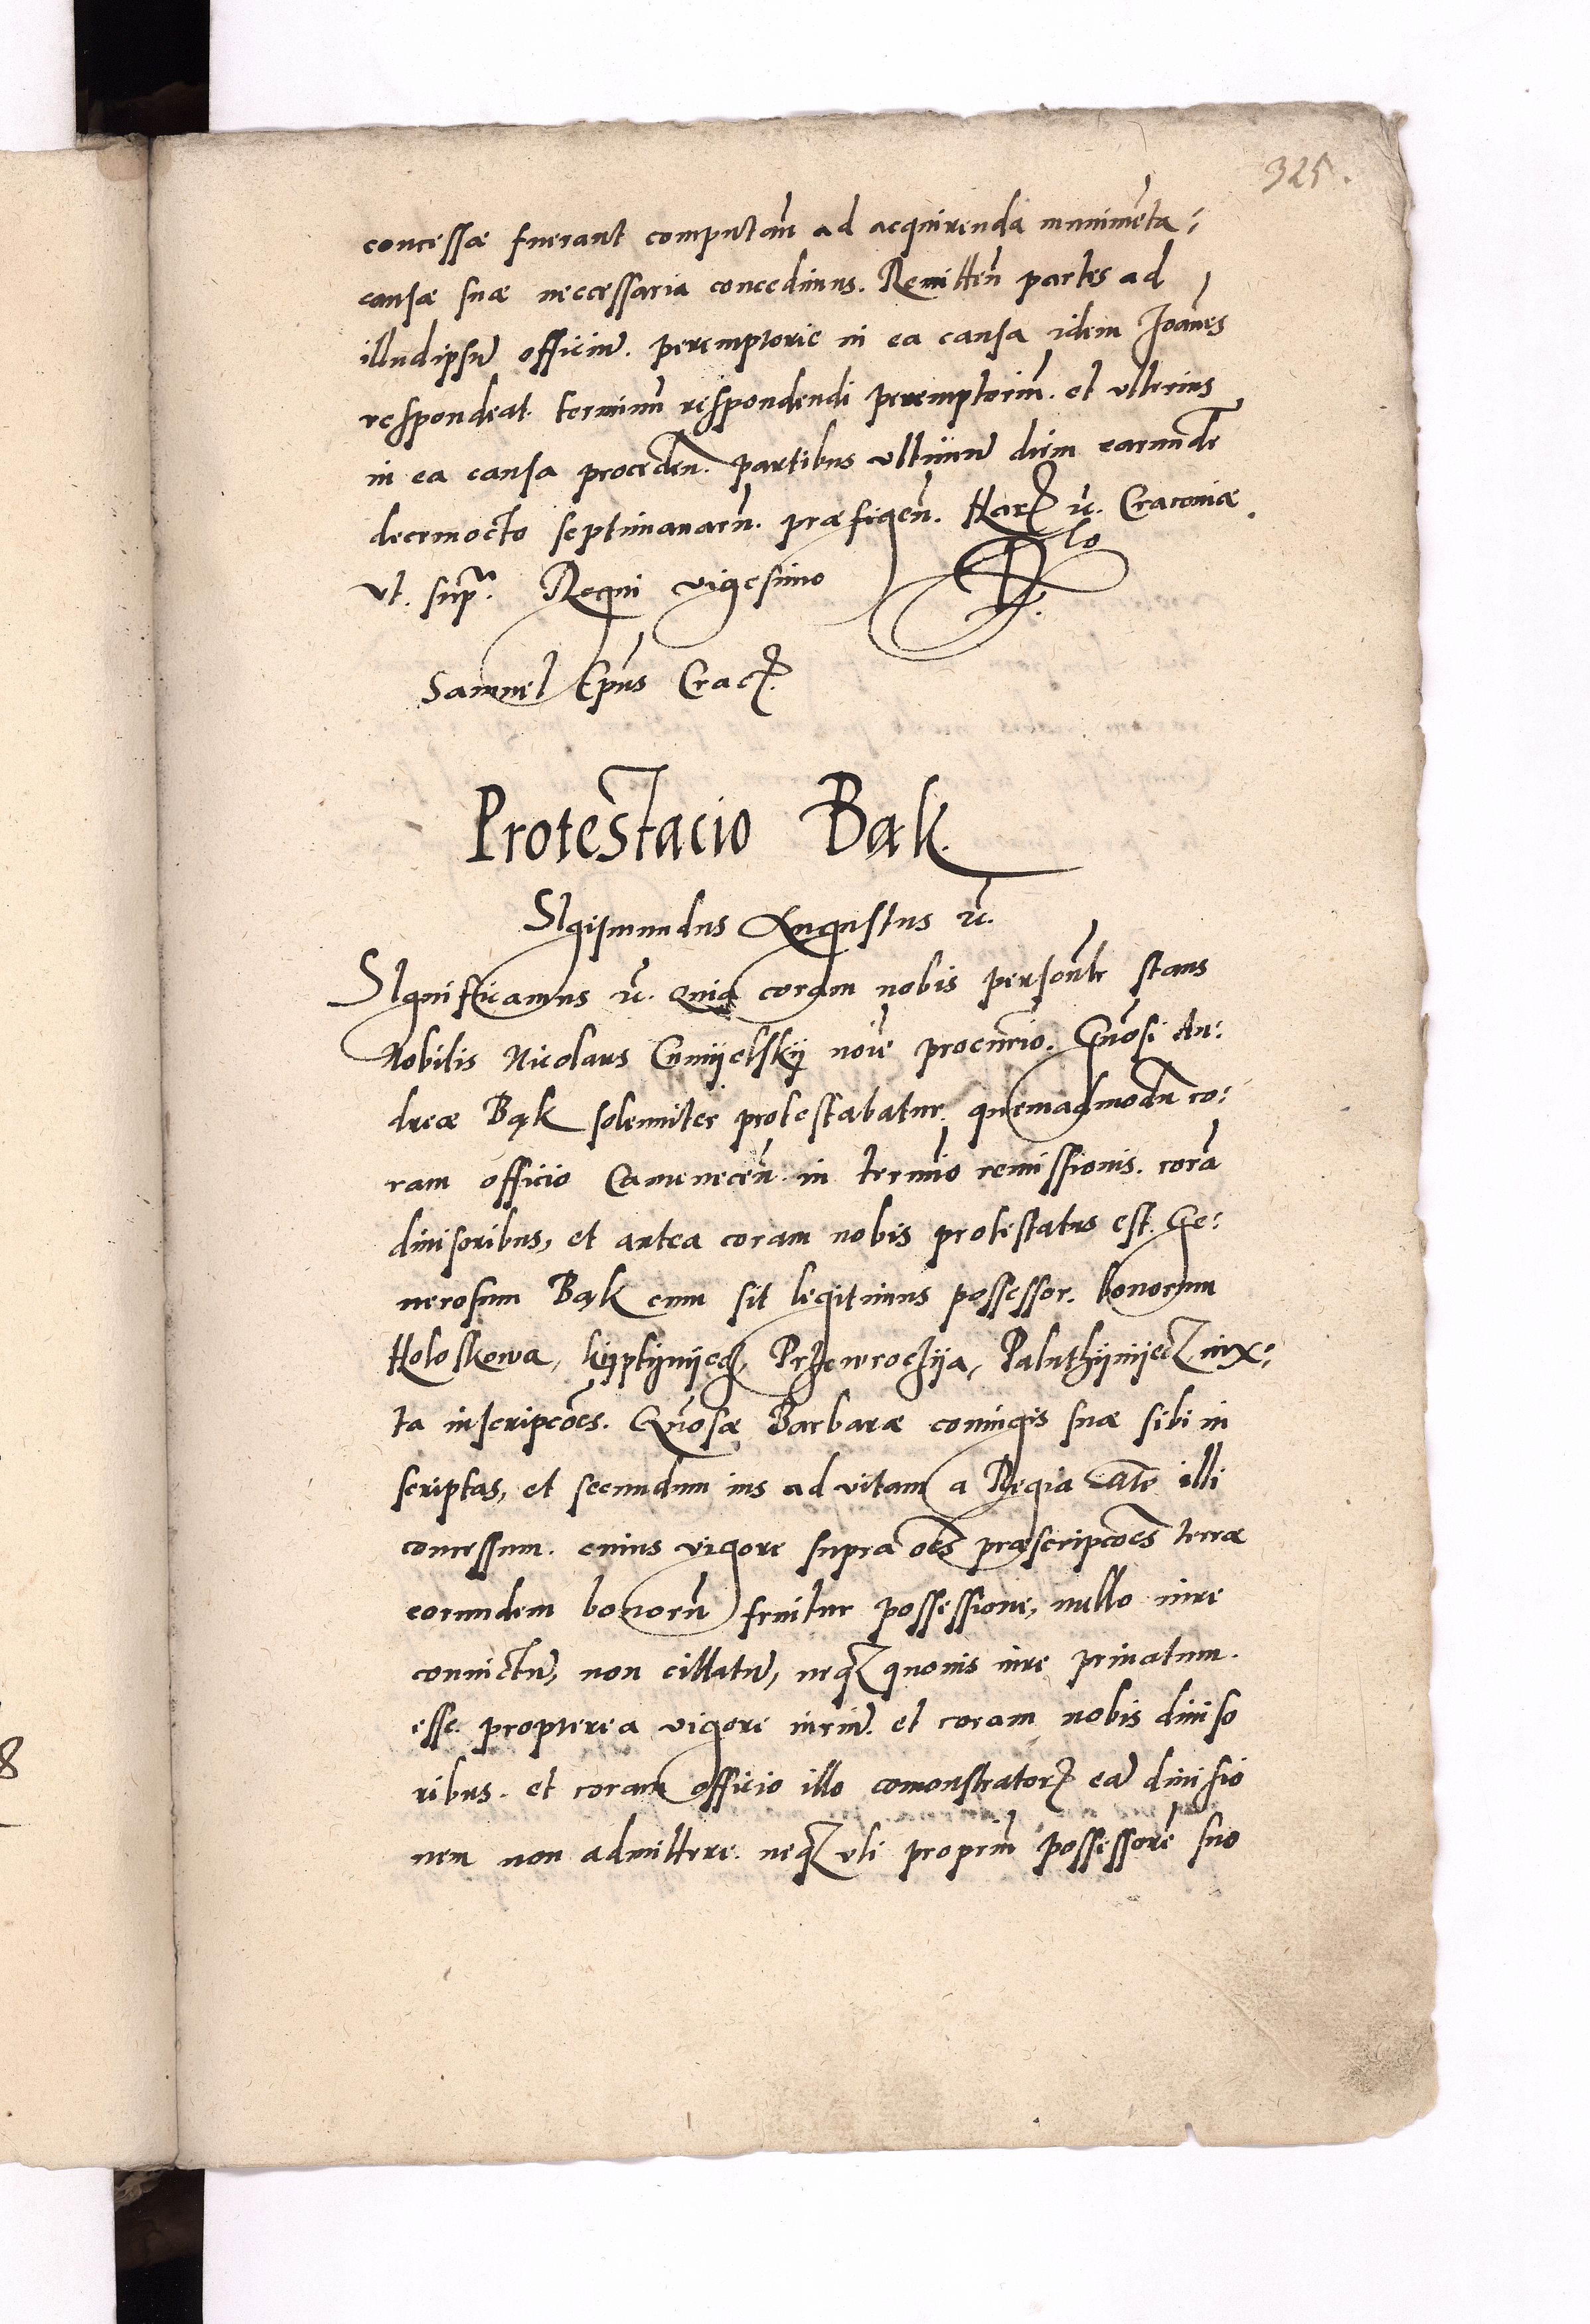 325.
concessæ fuerant computan̄ ad acquirenda munimēta:
causæ suæ neccessaria concedimus. Remitten̄ partes ad
illud ipsū officiū. peremptorie in ea causa idem Joāñes
respondeat. terminū respondendi peremptoriū. et ulterius
in ea causa proceden̄. partibus ultimū diem earundē
decemocto septimanarū. præfigen̄. Har. etc. Cracoviæ
ut. supra. Regni vigesimo
Samuel Ep̄us Crac.
Protestacio Bąk.
SIgismundus Augustus etc.
SIgnificamus etc. Quia coram nobis personlr stans
Nobilis Nicolaus noīe procurrio. Gn̄osi An:
dreæ Bąk solenniter protestabatur. quemadmodū co:
ram officio Camenecen̄ in termio remissionis. corā
divisoribus, et antea coram nobis protestatus est. Ge:
nerosum Bąk cum sit legitimus possessor. bonorum
Holoskowa, Przewroczÿa, iux:
ta inscripcōes. Gn̄osæ Barbaræ coniugis suæ sibi in
scriptas, et secundum ius ad vitam a Regia Mte illi
concessum. cuius vigore supra oēs præscripcōes terræ
eorundem bonorū fruitur possessione, nullo iure
convictū, non cittatū, neq quovis iure privatum.
esse. propterea vigore iuriū. et coram nobis diviso
ribus. et coram officio illo comonstrator. eā divisio
nem non admittere. neq uti propriū possessorē suo